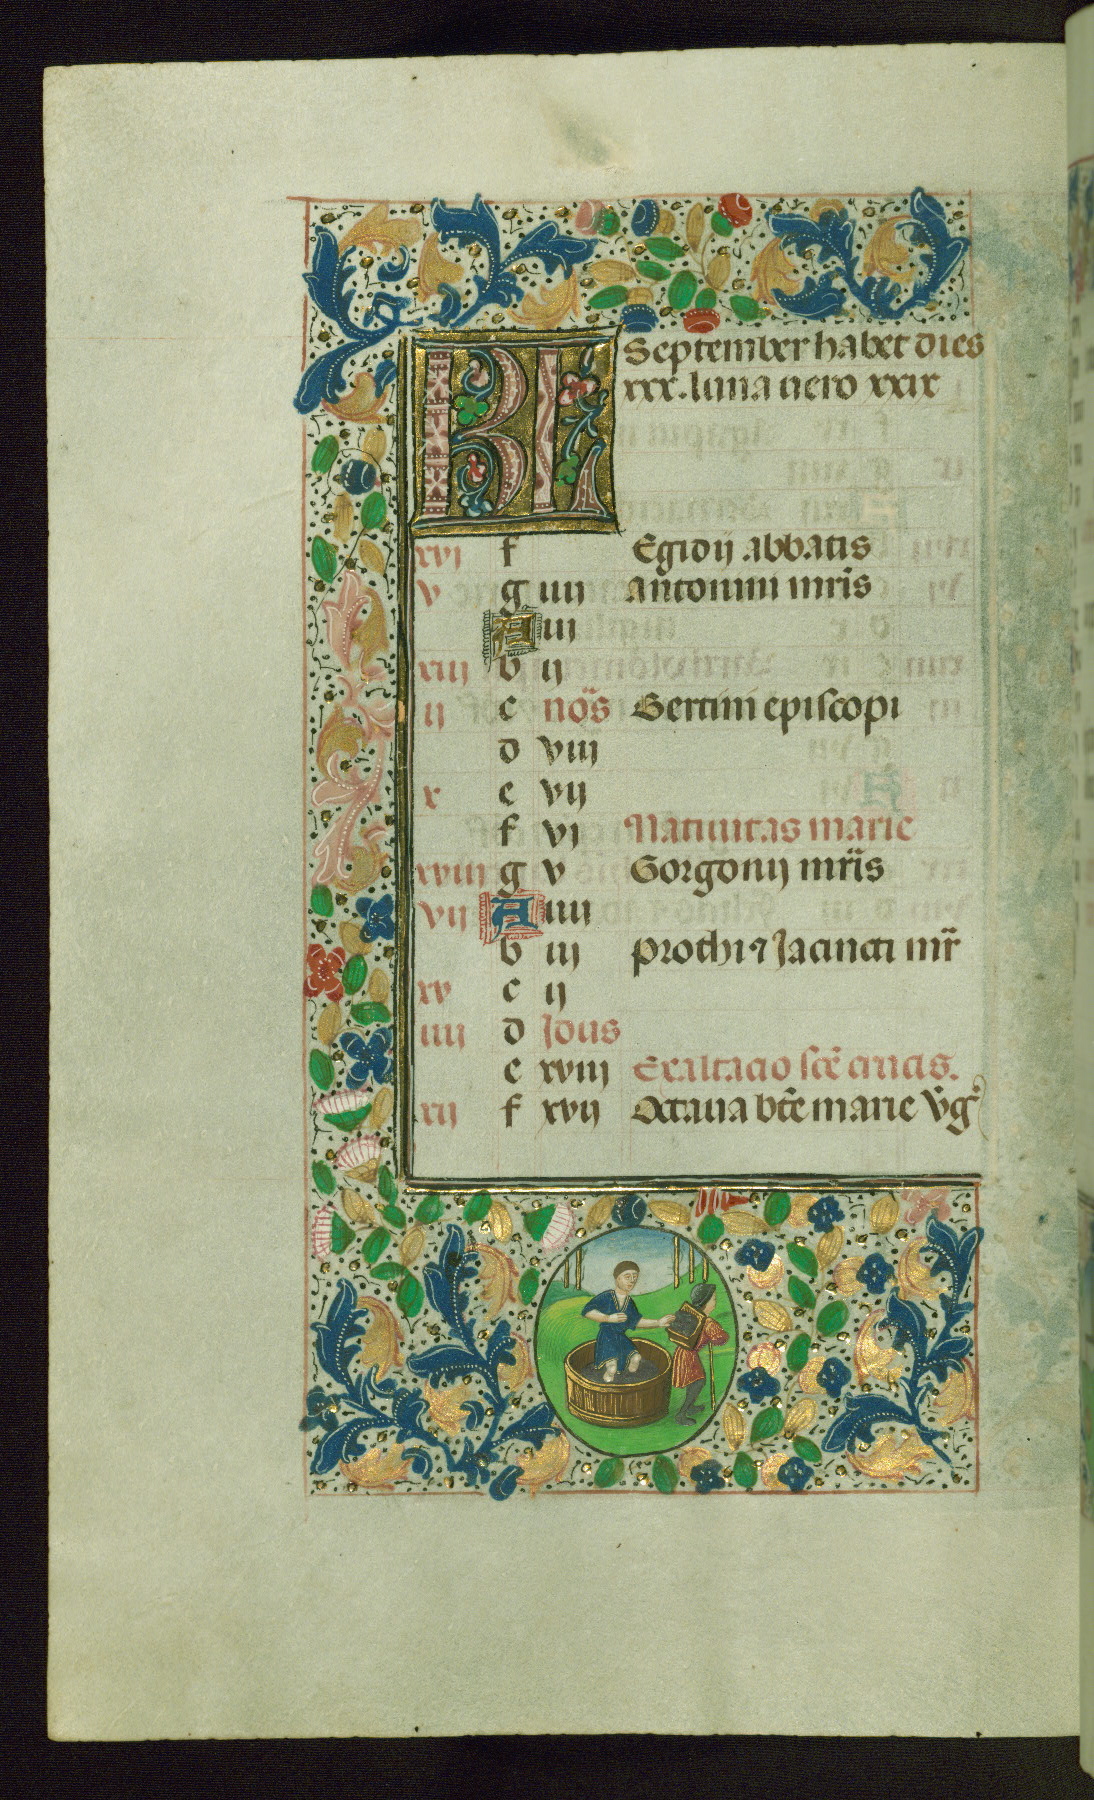 KL September habet dies
xxx. luna uero xxix
xvi f Egidij abbatis
v g iiii Antonini mr̃is
A iii
xiii b ii
ii c nõs Bertini episcopi
d viii
x e vii
f vi Natiuitas marie
xviii g v Gorgonij mr̃is
vii A iiii
b iii Prothi ⁊ Jacincti mr̃
xv c ii
iiii d Idus
e xviii Exaltacio scẽ crucis.
xii f xvii Octaua btẽ marie v̾g̾